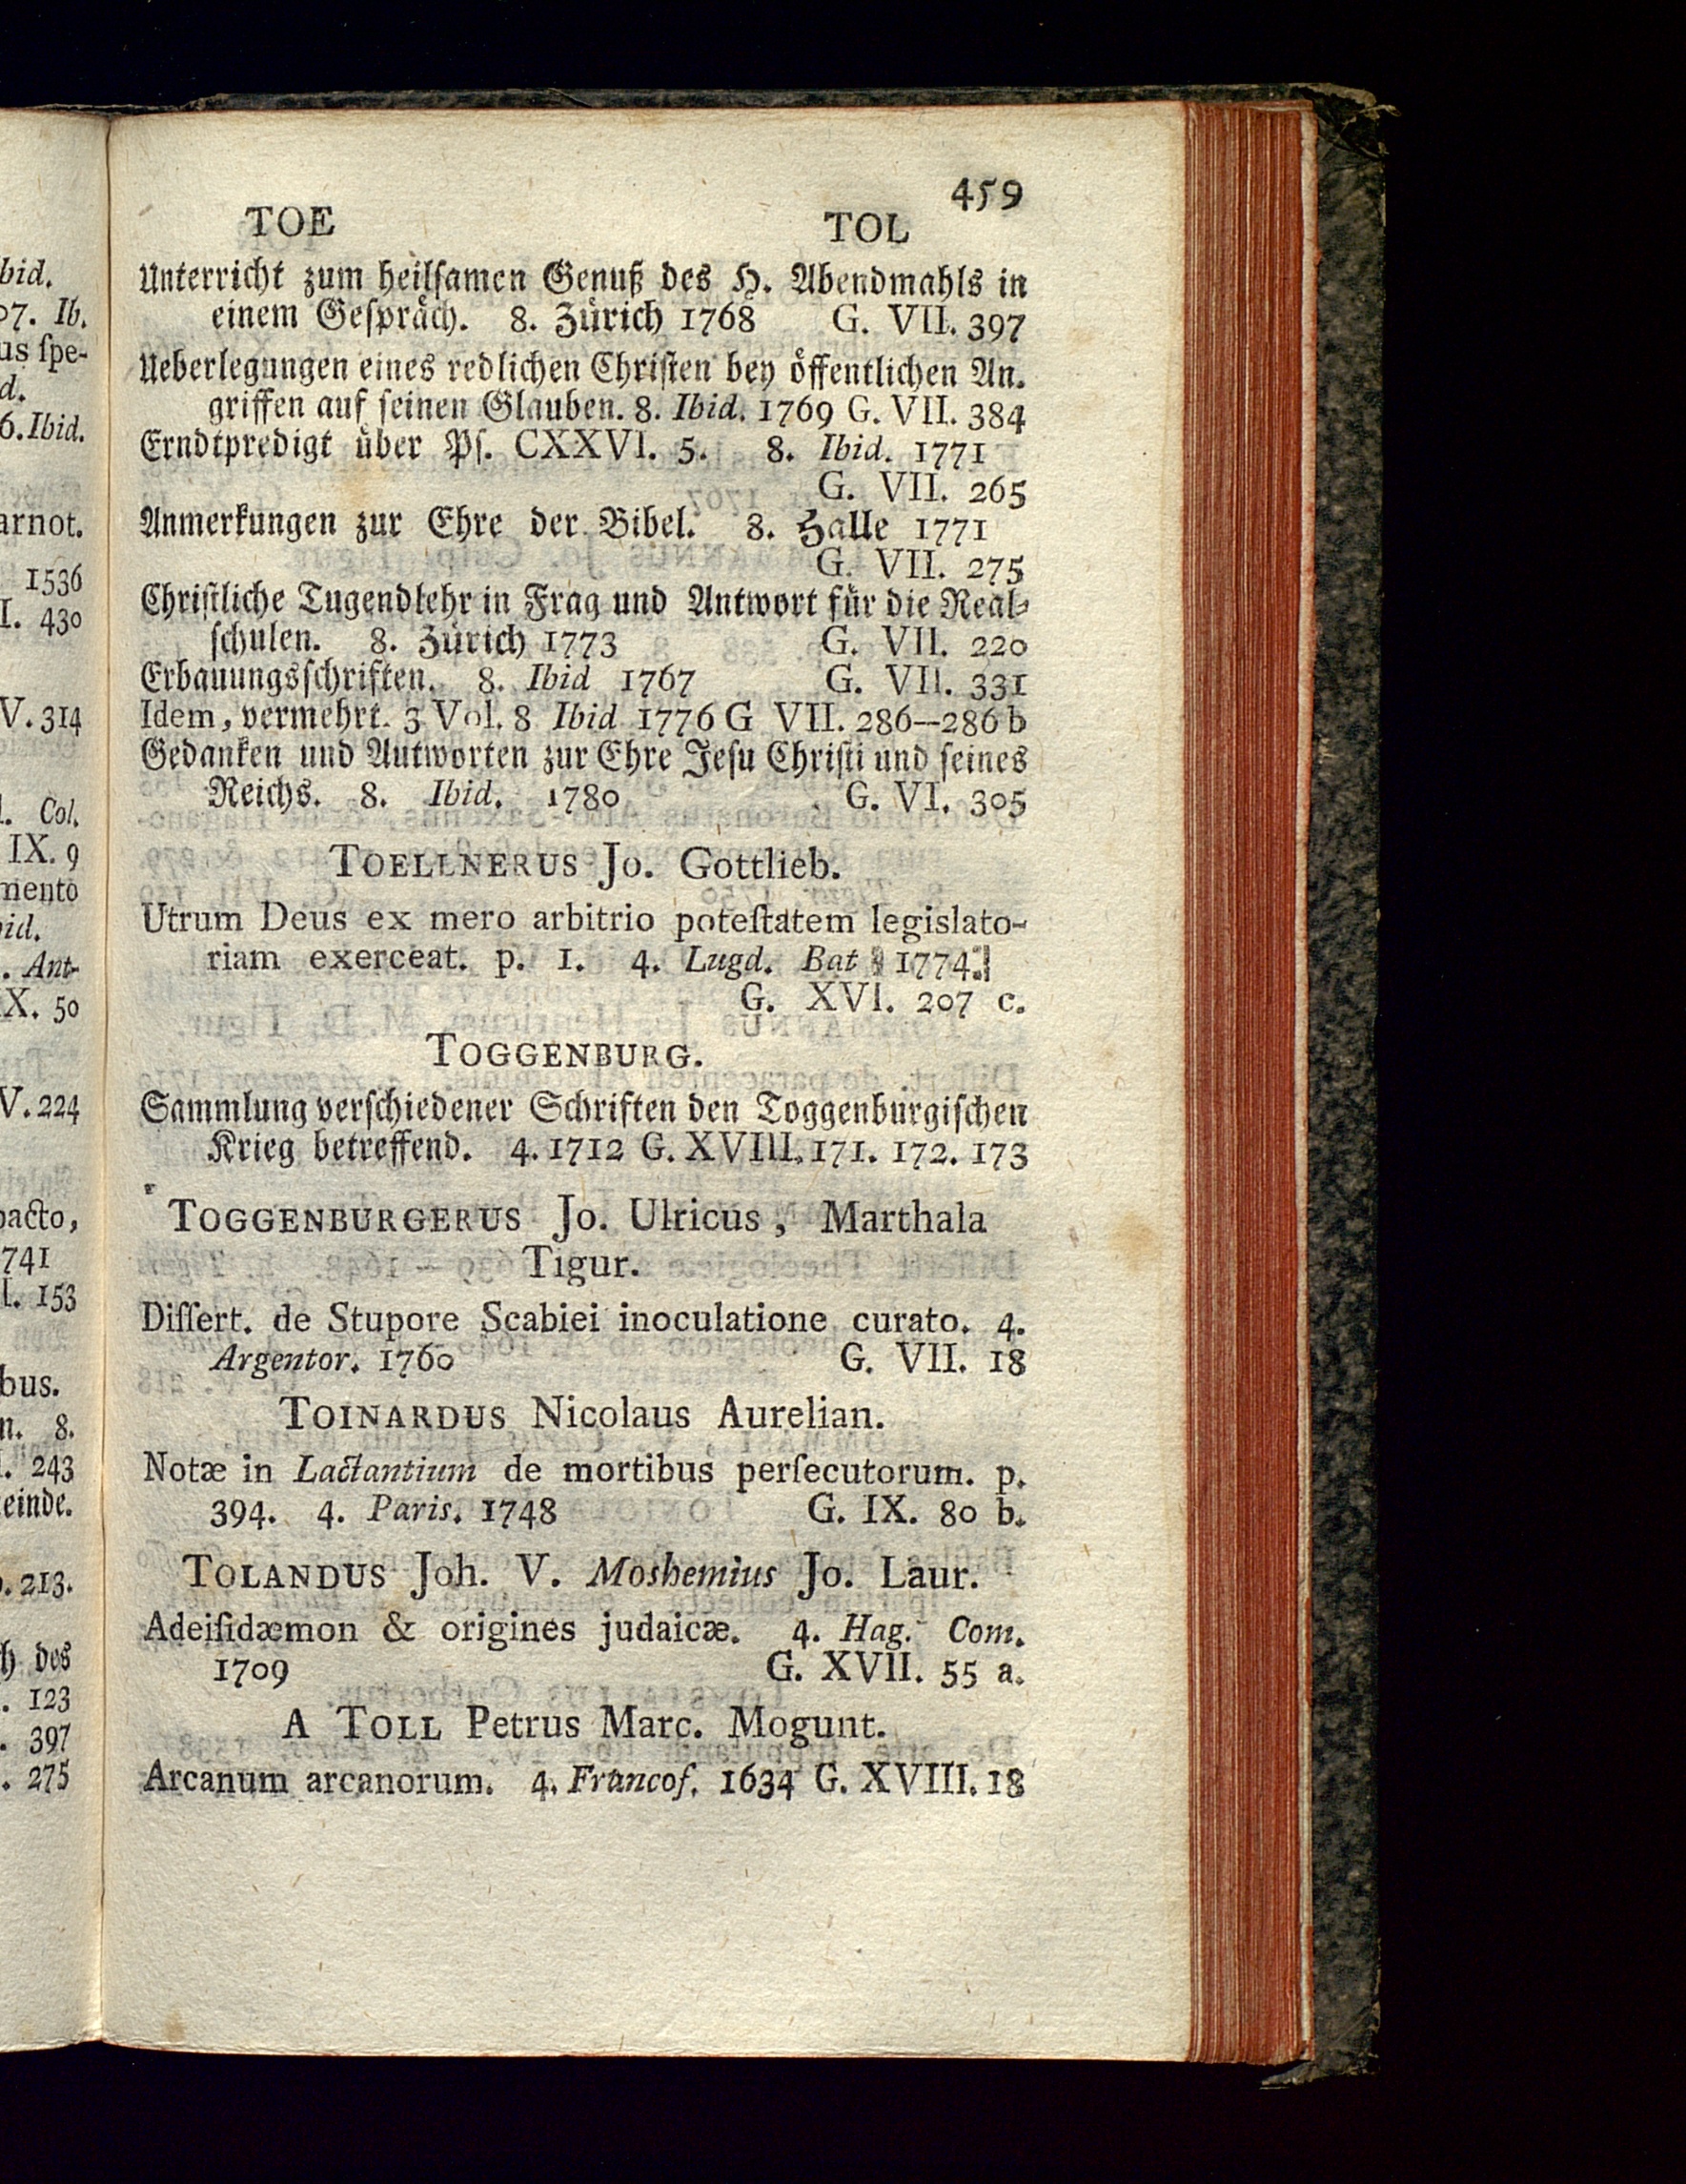 bid.
07. Ib.
us ſpe-
d.
6. Ibid.
arnot.
1536
I. 430
V. 314
l. Col.
IX. 9
mento
id.
. Ant-
X. 50
V. 224
pacto,
741
l. 153
bus.
n. 8.
. 243
einde.
. 213.
h des
. 123
. 397
. 275
459
TOE TOL
Unterricht zum heilſamen Genuß des H. Abendmahls in
einem Geſpräch. 8. Zürich 1768 G. VII. 397
Ueberlegungen eines redlichen Chriſten bey öffentlichen An.
griffen auf ſeinen Glauben. 8. Ibid. 1769 G. VII. 384
Erndtpredigt über Pſ. CXXVI. 5. 8. Ibid. 1771
G. VII. 265
Anmerkungen zur Ehre der Bibel. 8. Halle 1771
G. VII. 275
Chriſtliche Tugendlehr in Frag und Antwort für die Real-
ſchulen. 8. Zürich 1773 G. VII. 220
Erbauungsſchriften. 8. Ibid 1767 G. VII. 331
Idem, vermehrt. 3 Vol. 8 Ibid 1776 G VII. 286—286 b
Gedanken und Autworten zur Ehre Jeſu Chriſti und ſeines
Reichs. 8. Ibid. 1780 G. VI. 305
TOELLNERUS Jo. Gottlieb.
Utrum Deus ex mero arbitrio poteſtatem legislato-
riam exerceat. p. 1. 4. Lugd. Bat 1774.
G. XVI. 207 c.
TOGGENBURG.
Sammlung verſchiedener Schriften den Toggenburgiſchen
Krieg betreffend. 4. 1712 G. XVIII. 171. 172. 173
TOGGENBURGERUS Jo. Ulricus, Marthala
Tigur.
Diſſert. de Stupore Scabiei inoculatione curato. 4.
Argentor. 1760 G. VII. 18
TOINARDUS Nicolaus Aurelian.
Notæ in Lactantium de mortibus perſecutorum. p.
394. 4. Paris. 1748 G. IX. 80 b.
TOLANDUS Joh. V. Moshemius Jo. Laur.
Adeiſidæmon & origines judaicæ. 4. Hag. Com.
1709 G. XVII. 55 a.
A TOLL Petrus Marc. Mogunt.
Arcanum arcanorum. 4. Francof. 1634 G. XVIII. 18